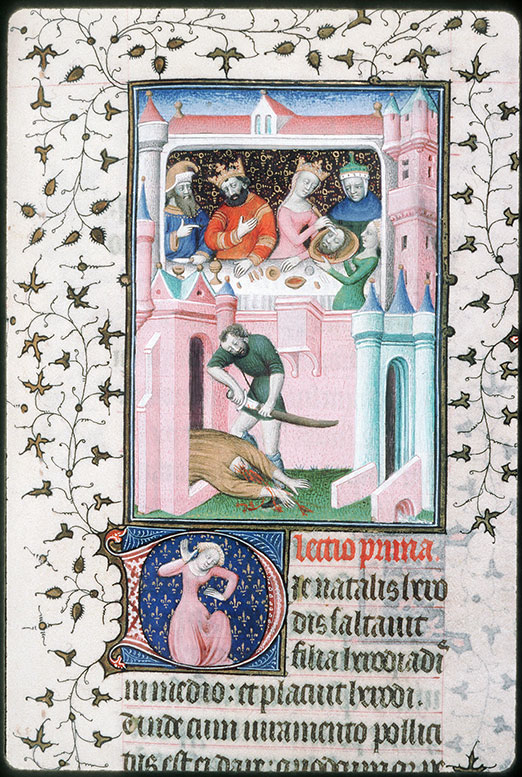 lectio prima
Die natalis hero
dis saltavit
filia herodiadis
in medio: et placuit herodi.
Unde cum iuramento pollici
tus est ei dare quodcumque